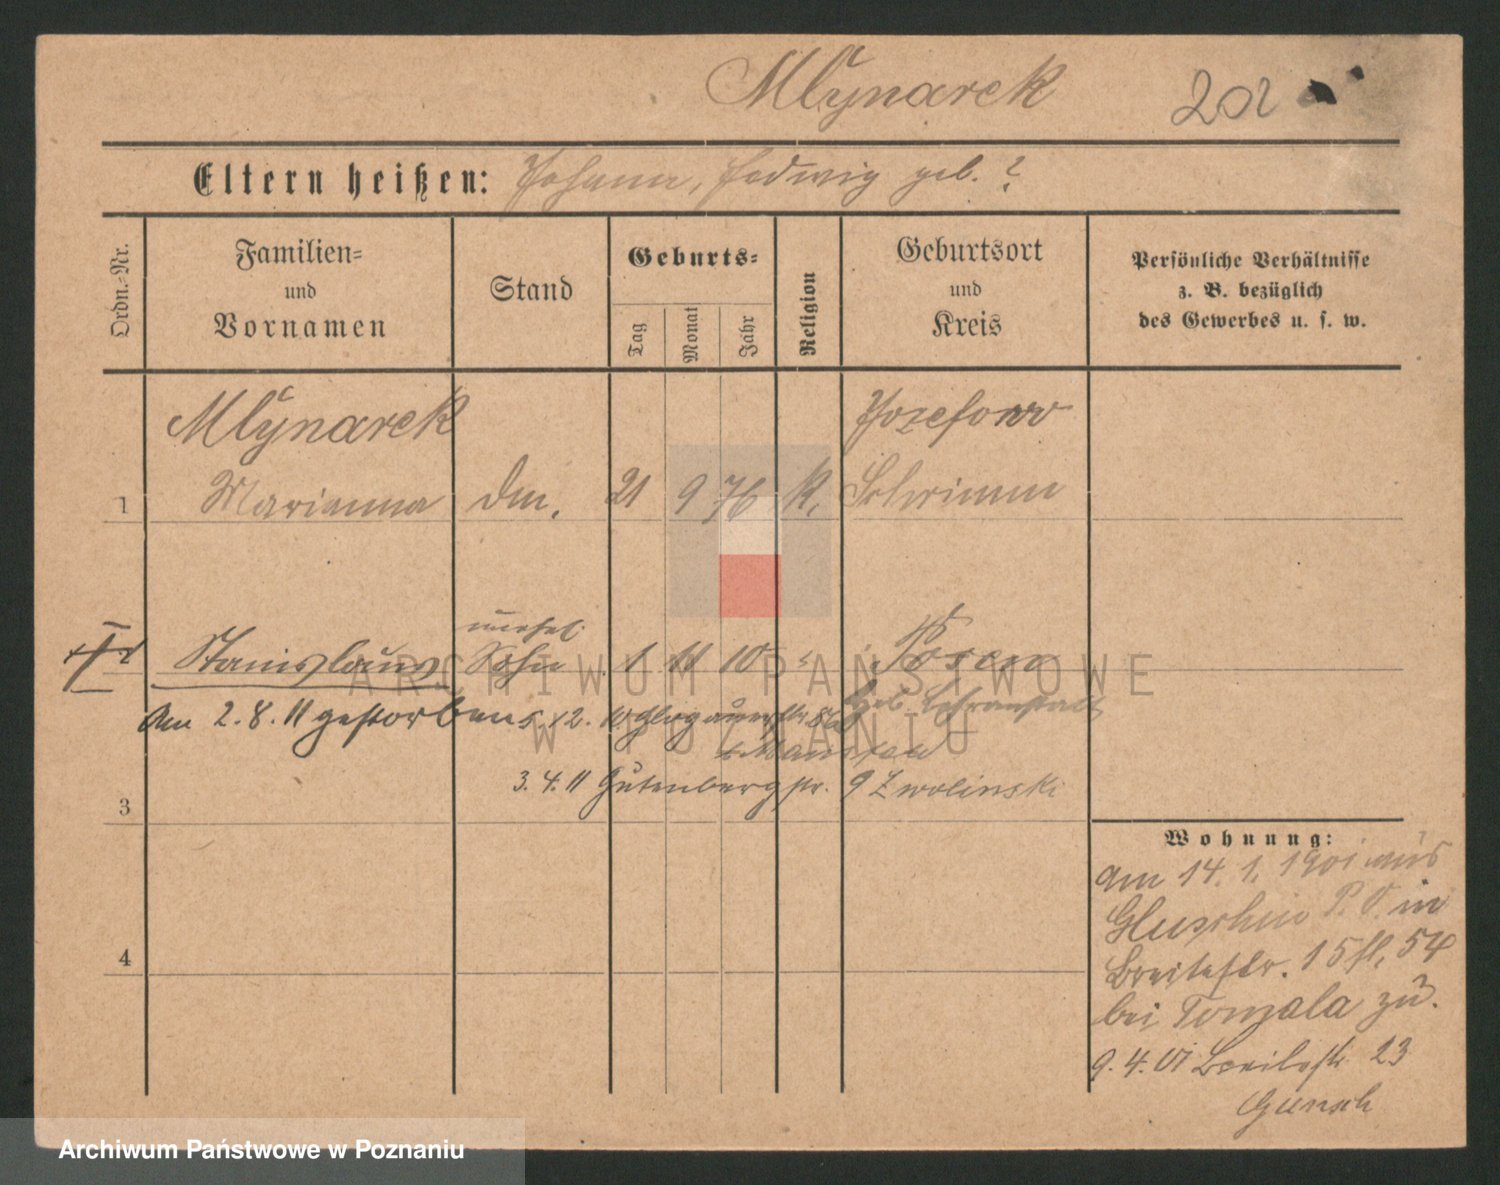 Młynarek 202
Eltern heißen: Johann, Hedwig geb. ?
Ordn.-Nr.
Familien-
und
Vornamen
Stand
Geburts-
Tag
Monat
Jahr
Religion
Geburtsort
und
Kreis
Persönliche Verhältnisse
z. B. bezüglich
des Gewerbes u. s. w.
Młynarek Jozefowo
1 Marianna 21 9 76 K. Schrimm
unehel.
Stanislaus Sohn 1 11 10 Posen
Am 2.8.11 gestorben 5.12. 10 Glogauerstr
3.4.11 Gutenbergstr. 9 Zwolinski
3
4
Wohnung:
am 14.1.1901 aus
Gluschin P. O. in
Breitestr. 15
bei Tomzala zu.
9.4.01 Breitestr. 23
ARCHIWUM PAŃSTWOWE
W POZNANIU
Archiwum Państwowe w Poznaniu